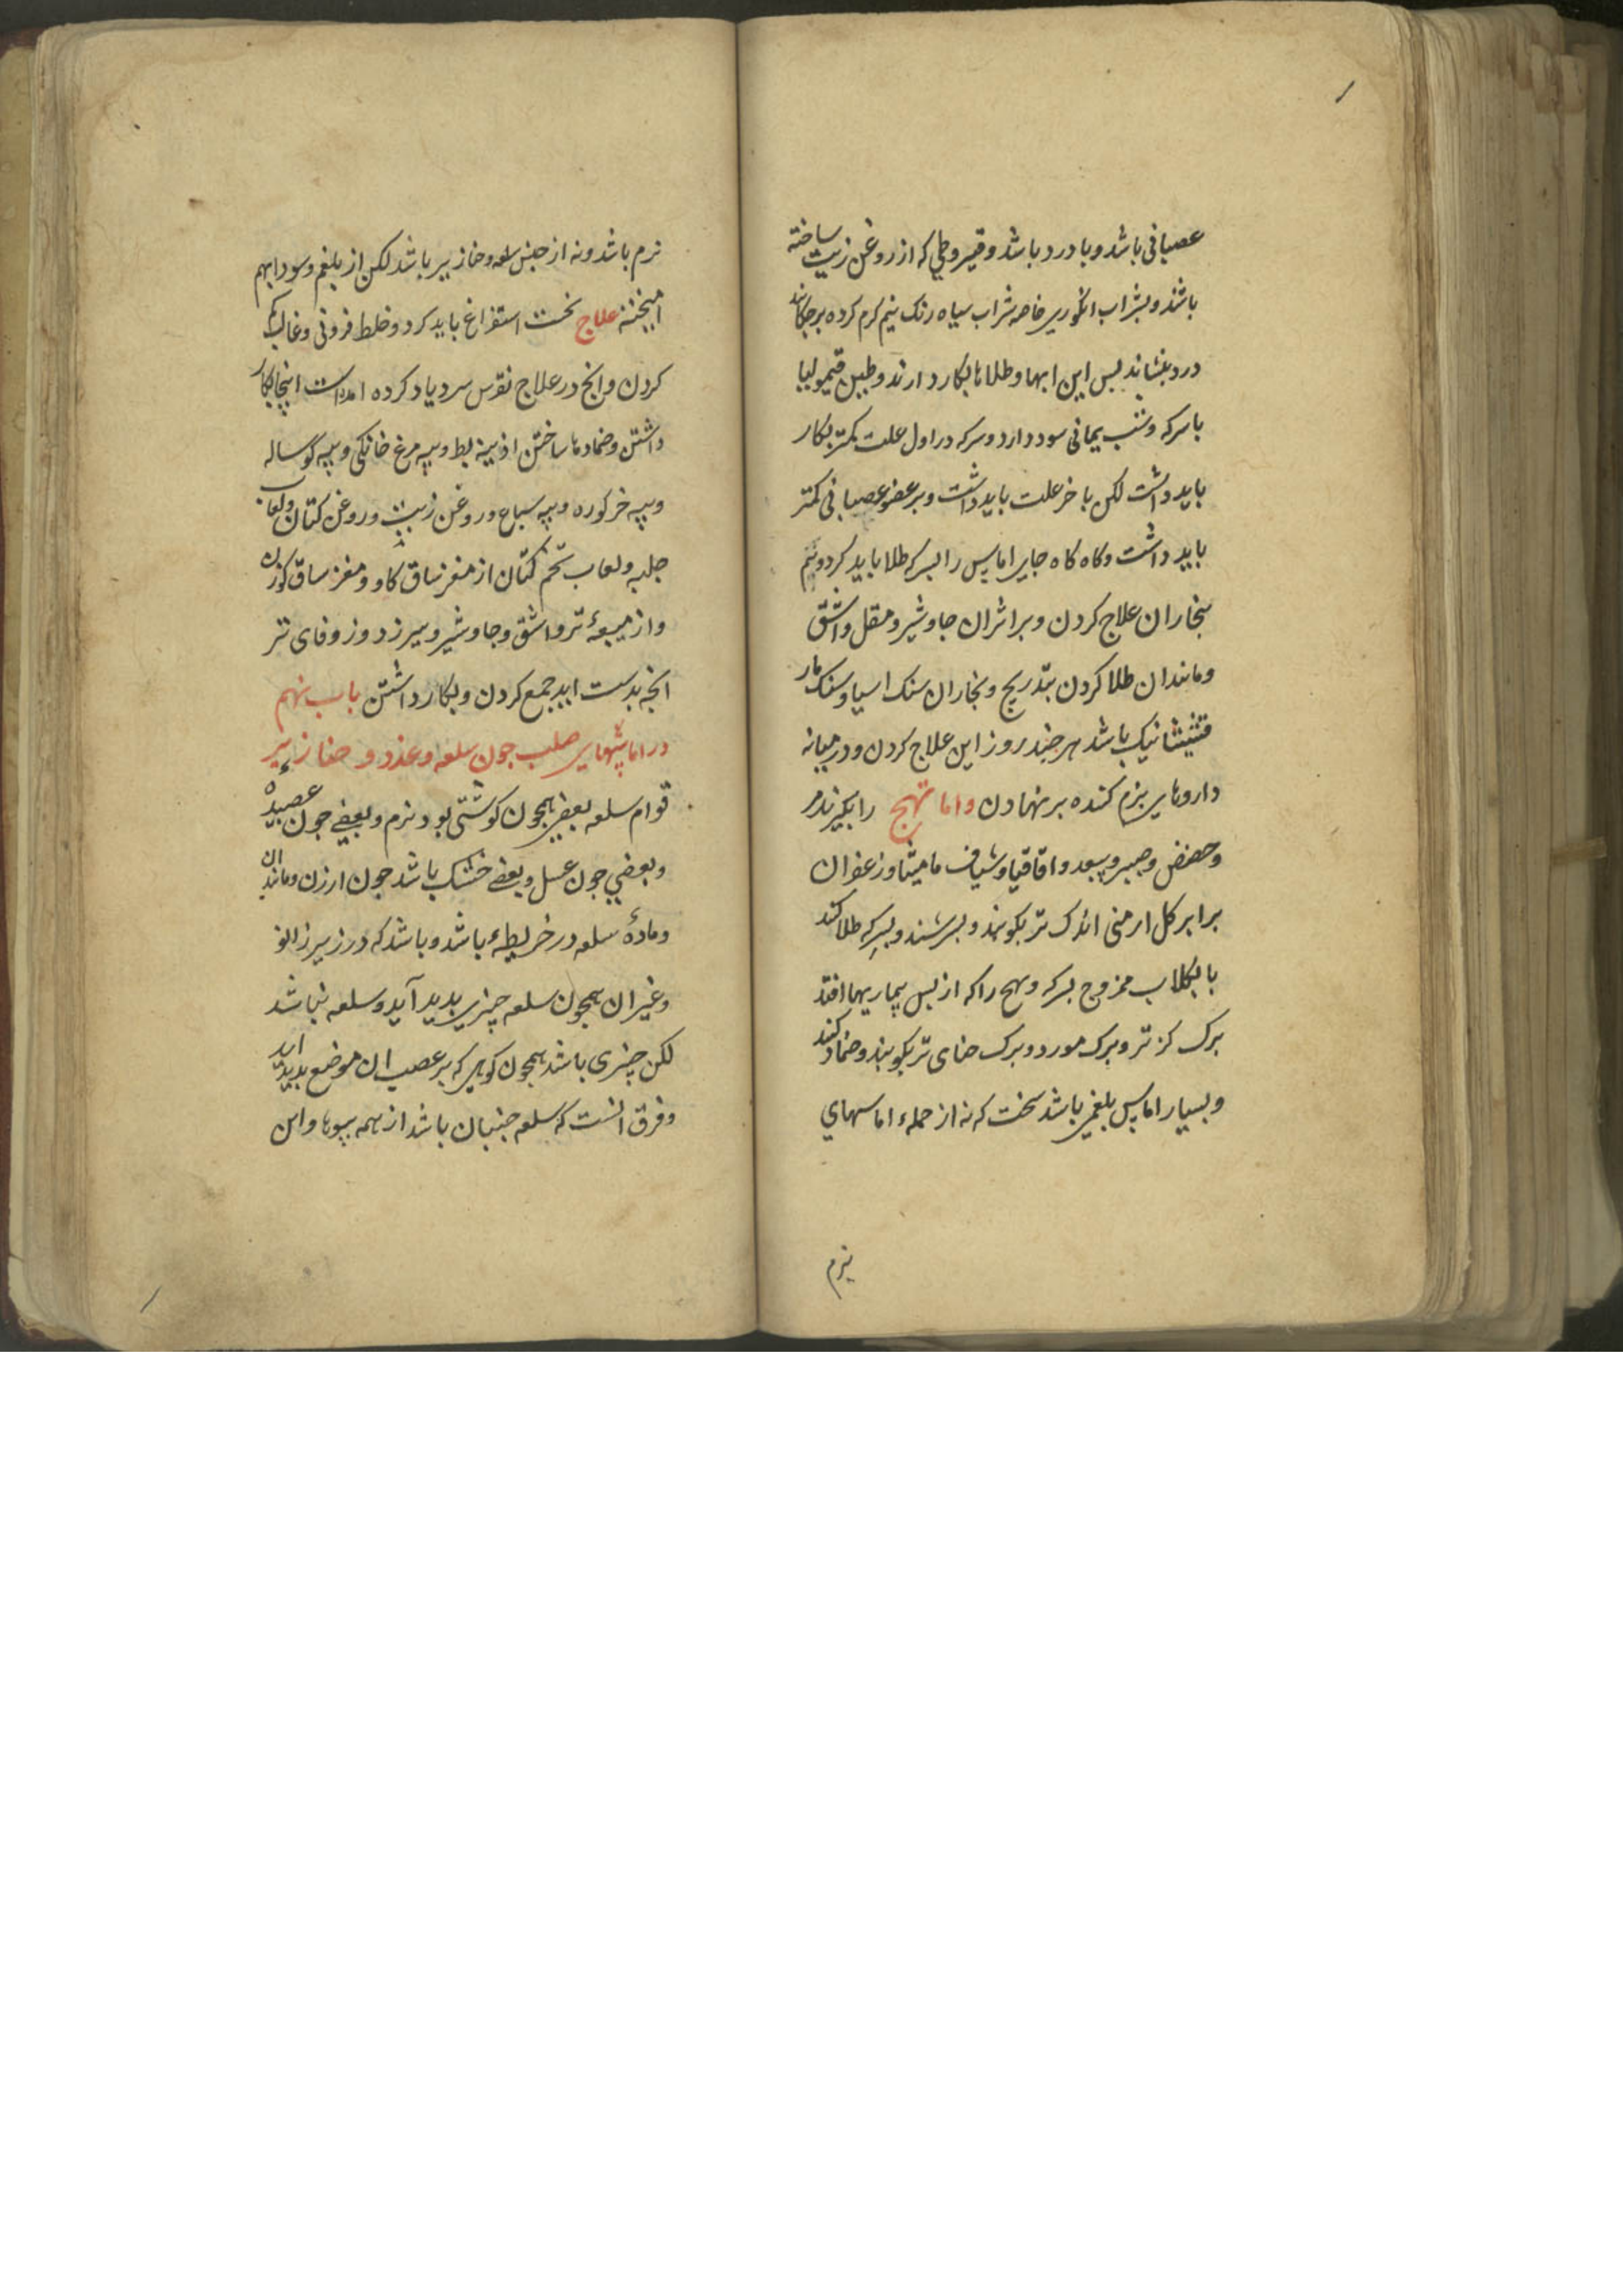 عصبانی باشد و با درد باشد و قیروطی که از روغن زیت ساخته
باشند و بشراب انکوری خاصه شراب سیاه رنک نیم کرم کرده برچکانند
درد بنشاند بس این ابها و طلاها بکار دارند و طین قیمولیا
با سرکه و شب یمانی سود دارد و سرکه در اول علت کمتر بکار
باید داشت لکن باخر علت باید داشت و بر عضو عصبانی کمتر
باید داشت و کاه کاه جای اماس را بسرکه طلا باید کرد و هم
ببخار ان علاج کردن و بر اثر ان جاوشیر و مقل و اشق
و مانند ان طلا کردن بتدریج و بخار ان سنک اسیا و سنک مار
قشیشا نیک باشد هر جند روز این علاج کردن و در میانه
داروهای نرم کننده برنهادن واما تهبج را بکیرند مر
و حضض و صبر و سعد و اقاقیا و شیاف مامیثا و زعفران
برابر کل ارمنی اندک تر بکوبند و بسرشند و بسرکه طلا کنند
یا بکلاب ممزوج بسرکه و تهبج را که از بس بیماریها افتد
برک کز تر و برک مورد و برک حنای تر بکوبند و ضماد کنند
و بسیار اماس بلغمی باشد سخت که نه از جمله اماسهای
نرم
نرم باشد و نه از جنس سلعه و خنازیر باشد لکن از بلغم و سودا بهم
امیخته علاج نخست استفراغ باید کرد و خلط فزونی و غالب کم
کردن و انج در علاج نقرس سرد یاد کرده امدست اینجا بکار
داشتن و ضمادها ساختن از بیه بط و بیه مرغ خانکی و بیه کوساله
و بیه خرکوره و بیه سباع و روغن زیت و روغن کتان و لعاب
حلبه و لعاب تخم کتان از مغز ساق کاو و مغز ساق کوزن
و از میعهٔ تر و اشق و جاوشیر و بیرزد و زوفای تر
انجه بدست اید جمع کردن و بکار داشتن باب نهم
در اماسهای صلب جون سلعه و غدد و خنازیر
قوام سلعه بعضی همجون کوشتی بود نرم و بعضی جون عصیده
و بعضی جون عسل و بعضی خشک باشد جون ارزن و مانند ان
و مادهٔ سلعه در خریطهٔ باشد و باشد که در زیر زانو
و غیر ان همجون سلعه چیزی بدید آید و سلعه نباشد
لکن چیزی باشد همجون کوهی که بر عصب ان موضع بدید اید
و فرق انست که سلعه جنبان باشد از همه سوها و این